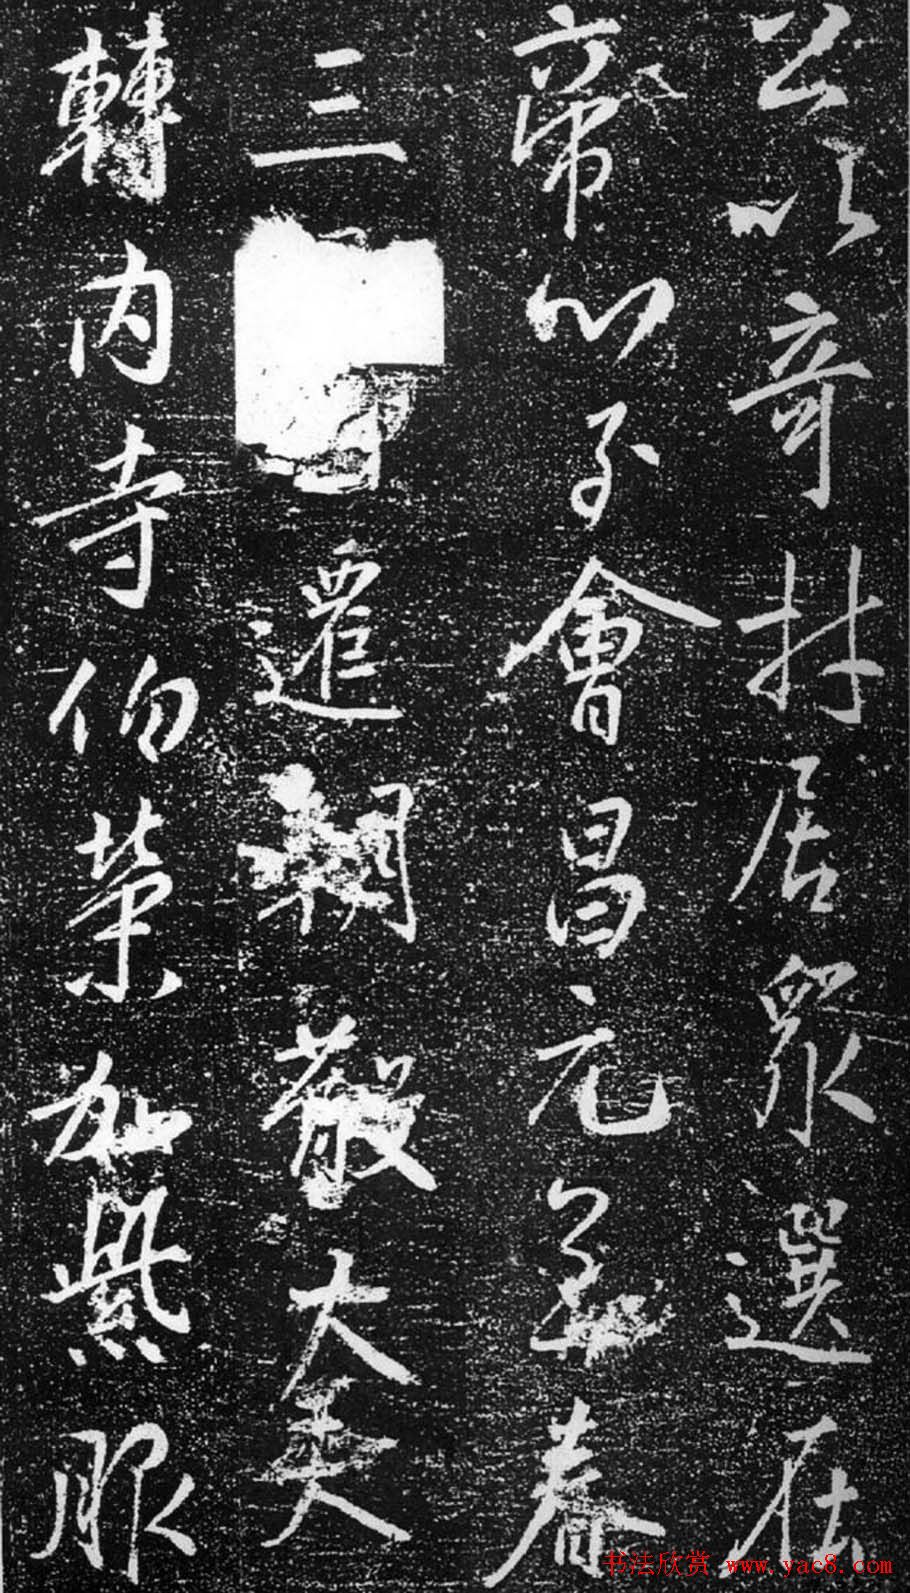 公以奇材居眾選在
帝心至會昌元年春
三遷朝散大夫
轉内寺伯榮加服
书法欣赏 www.yac8.com